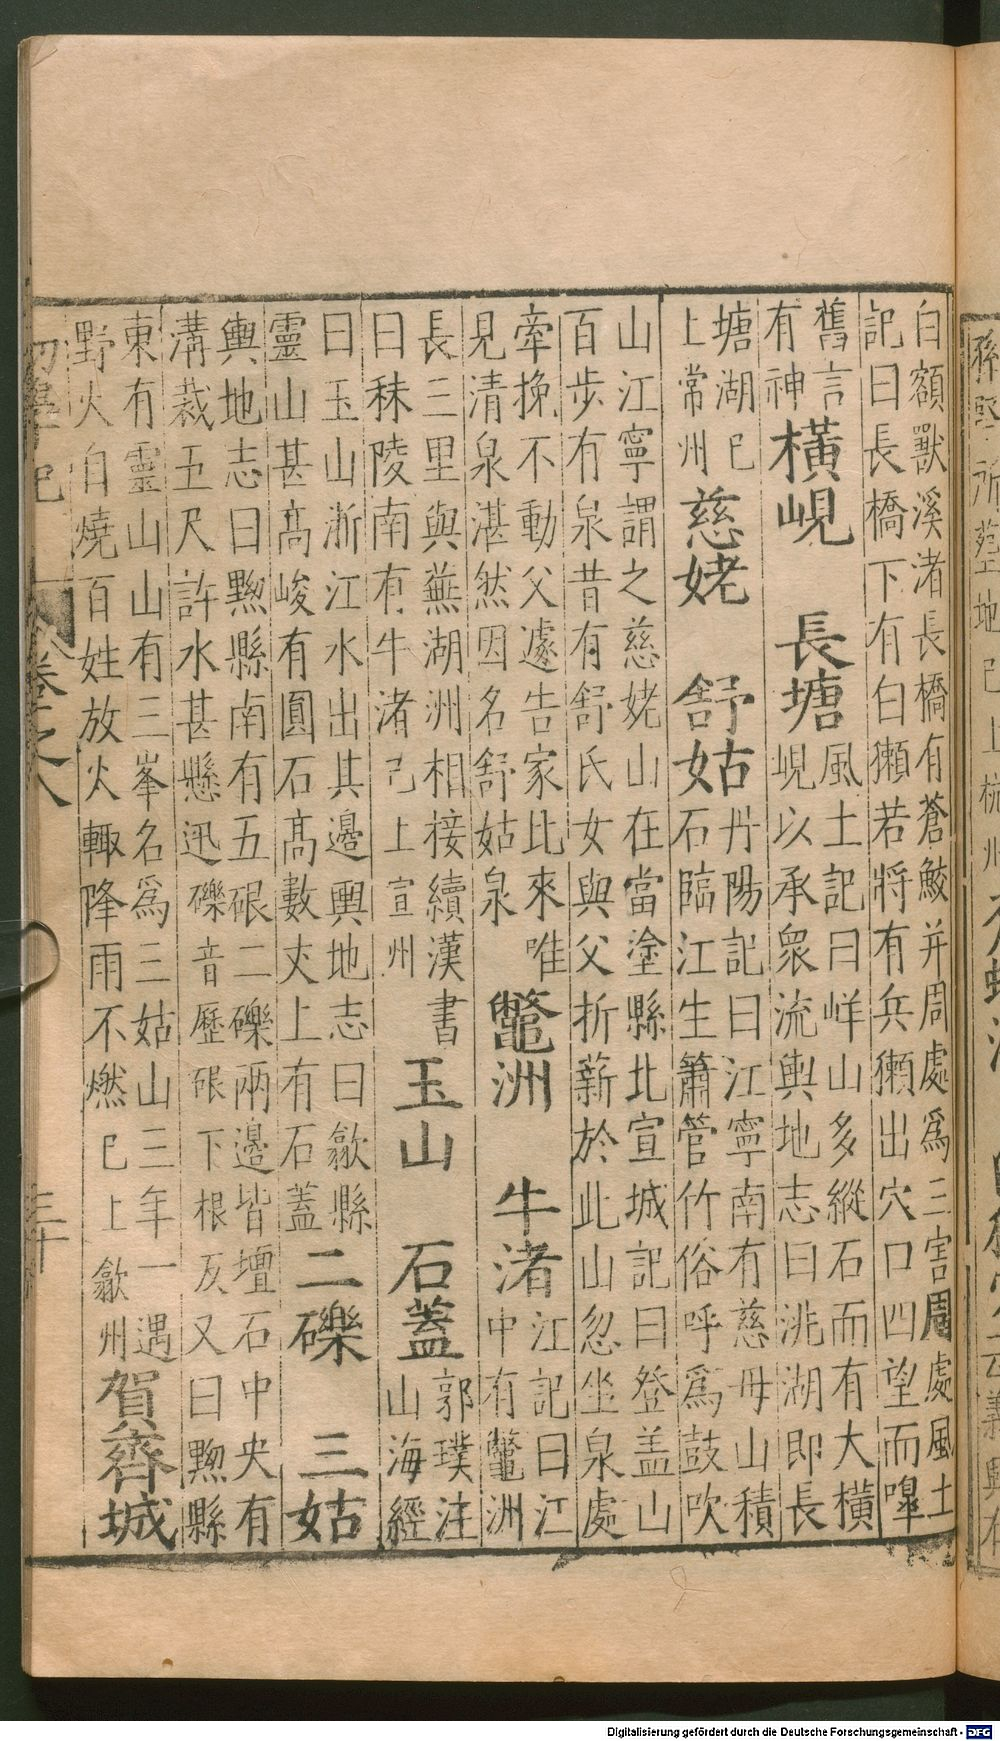 孫堅所葬地已上杭州
白額獸溪渚長橋有蒼鮫并周處爲三害周處風土
記曰長橋下有白獺若將有兵獺出穴口四望而嘷
舊言
有神
橫峴　長塘
風土記曰㟄山多縱石而有大橫
峴以承衆流輿地志曰洮湖即長
塘湖已
上常州
慈姥　舒姑
丹陽記曰江寧南有慈母山積
石臨江生簫管竹俗呼爲鼓吹
山江寧謂之慈姥山在當塗縣北宣城記曰登盖山
百步有泉昔有舒氏女與父折薪於此山忽坐泉處
牽挽不動父遽告家比來唯
見清泉湛然因名舒姑泉
鼈洲　牛渚
江記曰江
中有鼈洲
長三里與蕪湖洲相接續漢書
曰秣陵南有牛渚已上宣州
玉山　石蓋
郭璞注
山海經
曰玉山浙江水出其邊輿地志曰歙縣
靈山甚髙峻有圓石髙數丈上有石蓋
二礫　三姑
輿地志曰黟縣南有五硍二礫兩邊皆壇石中央有
溝裁五尺許水甚懸迅礫音歷硍下根反又曰黟縣
東有靈山山有三峯名爲三姑山三年一遇
野火自燒百姓放火輙降雨不燃已上歙州
賀齊城
初學記　卷之八　三十
Digitalisierung gefördert durch die Deutsche Forschungsgemeinschaft - DFG